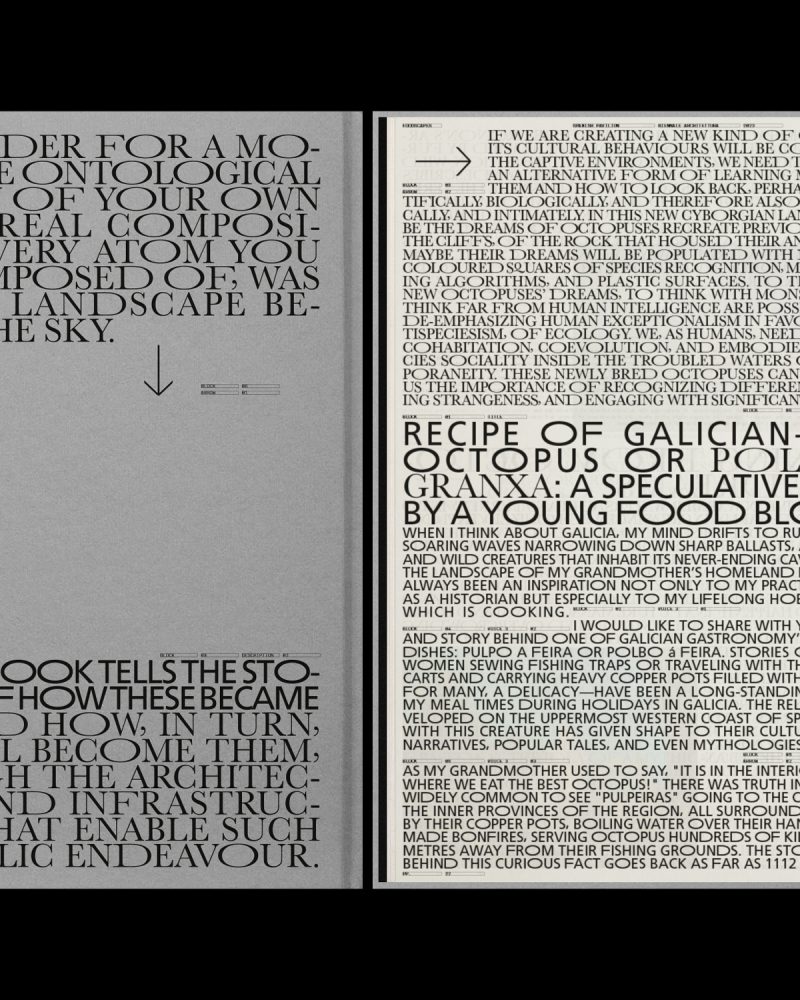 DER FOR A MO-
E ONTOLOGICAL
OF YOUR OWN
REAL COMPOSI-
VERY ATOM YOU
MPOSED OF, WAS
LANDSCAPE BE-
HE SKY.
BLOCK 06
ARROW 01
BLOCK 09 DESCRIPTION 02
OOK TELLS THE STO-
F HOW THESE BECAME
D HOW, IN TURN,
L BECOME THEM,
H THE ARCHITEC-
ND INFRASTRUC-
HAT ENABLE SUCH
LIC ENDEAVOUR.
FOODSCAPES SPANISH PAVILION BIENNALE ARCHITETTURA 2023
IF WE ARE CREATING A NEW KIND OF
ITS CULTURAL BEHAVIOURS WILL BE CO
THE CAPTIVE ENVIRONMENTS, WE NEED T
AN ALTERNATIVE FORM OF LEARNING
THEM AND HOW TO LOOK BACK, PERHA
TIFICALLY, BIOLOGICALLY, AND THEREFORE ALSO
CALLY, AND INTIMATELY. IN THIS NEW CYBORGIAN LAN
BE THE DREAMS OF OCTOPUSES RECREATE PREVIO
THE CLIFFS, OF THE ROCK THAT HOUSED THEIR AN
MAYBE THEIR DREAMS WILL BE POPULATED WITH
COLOURED SQUARES OF SPECIES RECOGNITION, M
ING ALGORITHMS, AND PLASTIC SURFACES. TO T
NEW OCTOPUSES' DREAMS, TO THINK WITH MON
THINK FAR FROM HUMAN INTELLIGENCE ARE POSS
DE-EMPHASIZING HUMAN EXCEPTIONALISM IN FAVO
TISPECIESISM. OF ECOLOGY. WE, AS HUMANS, NEED
COHABITATION, COEVOLUTION, AND EMBODIE
CIES SOCIALITY INSIDE THE TROUBLED WATERS
PORANEITY. THESE NEWLY BRED OCTOPUSES CAN
US THE IMPORTANCE OF RECOGNIZING DIFFEREN
ING STRANGENESS, AND ENGAGING WITH SIGNIFICAN
BLOCK 01 TITLE
RECIPE OF GALICIAN-
OCTOPUS OR POL
GRANXA: A SPECULATIVE
BY A YOUNG FOOD BLO
WHEN I THINK ABOUT GALICIA, MY MIND DRIFTS TO RU
SOARING WAVES NARROWING DOWN SHARP BALLASTS,
AND WILD CREATURES THAT INHABIT ITS NEVER-ENDING CAV
THE LANDSCAPE OF MY GRANDMOTHER'S HOMELAND
ALWAYS BEEN AN INSPIRATION NOT ONLY TO MY PRACT
AS A HISTORIAN BUT ESPECIALLY TO MY LIFELONG HOB
WHICH IS COOKING.
I WOULD LIKE TO SHARE WITH Y
AND STORY BEHIND ONE OF GALICIAN GASTRONOMY'
DISHES: PULPO A FEIRA OR POLBO á FEIRA. STORIES O
WOMEN SEWING FISHING TRAPS OR TRAVELING WITH TH
CARTS AND CARRYING HEAVY COPPER POTS FILLED WITH
FOR MANY, A DELICACY—HAVE BEEN A LONG-STANDIN
MY MEAL TIMES DURING HOLIDAYS IN GALICIA. THE REL
VELOPED ON THE UPPERMOST WESTERN COAST OF SP
WITH THIS CREATURE HAS GIVEN SHAPE TO THEIR CULTU
NARRATIVES, POPULAR TALES, AND EVEN MYTHOLOGIES
AS MY GRANDMOTHER USED TO SAY, "IT IS IN THE INTERIO
WHERE WE EAT THE BEST OCTOPUS!" THERE WAS TRUTH IN
WIDELY COMMON TO SEE "PULPEIRAS" GOING TO THE C
THE INNER PROVINCES OF THE REGION, ALL SURROUND
BY THEIR COPPER POTS, BOILING WATER OVER THEIR HAN
MADE BONFIRES, SERVING OCTOPUS HUNDREDS OF KIL
METRES AWAY FROM THEIR FISHING GROUNDS. THE STO
BEHIND THIS CURIOUS FACT GOES BACK AS FAR AS 1112